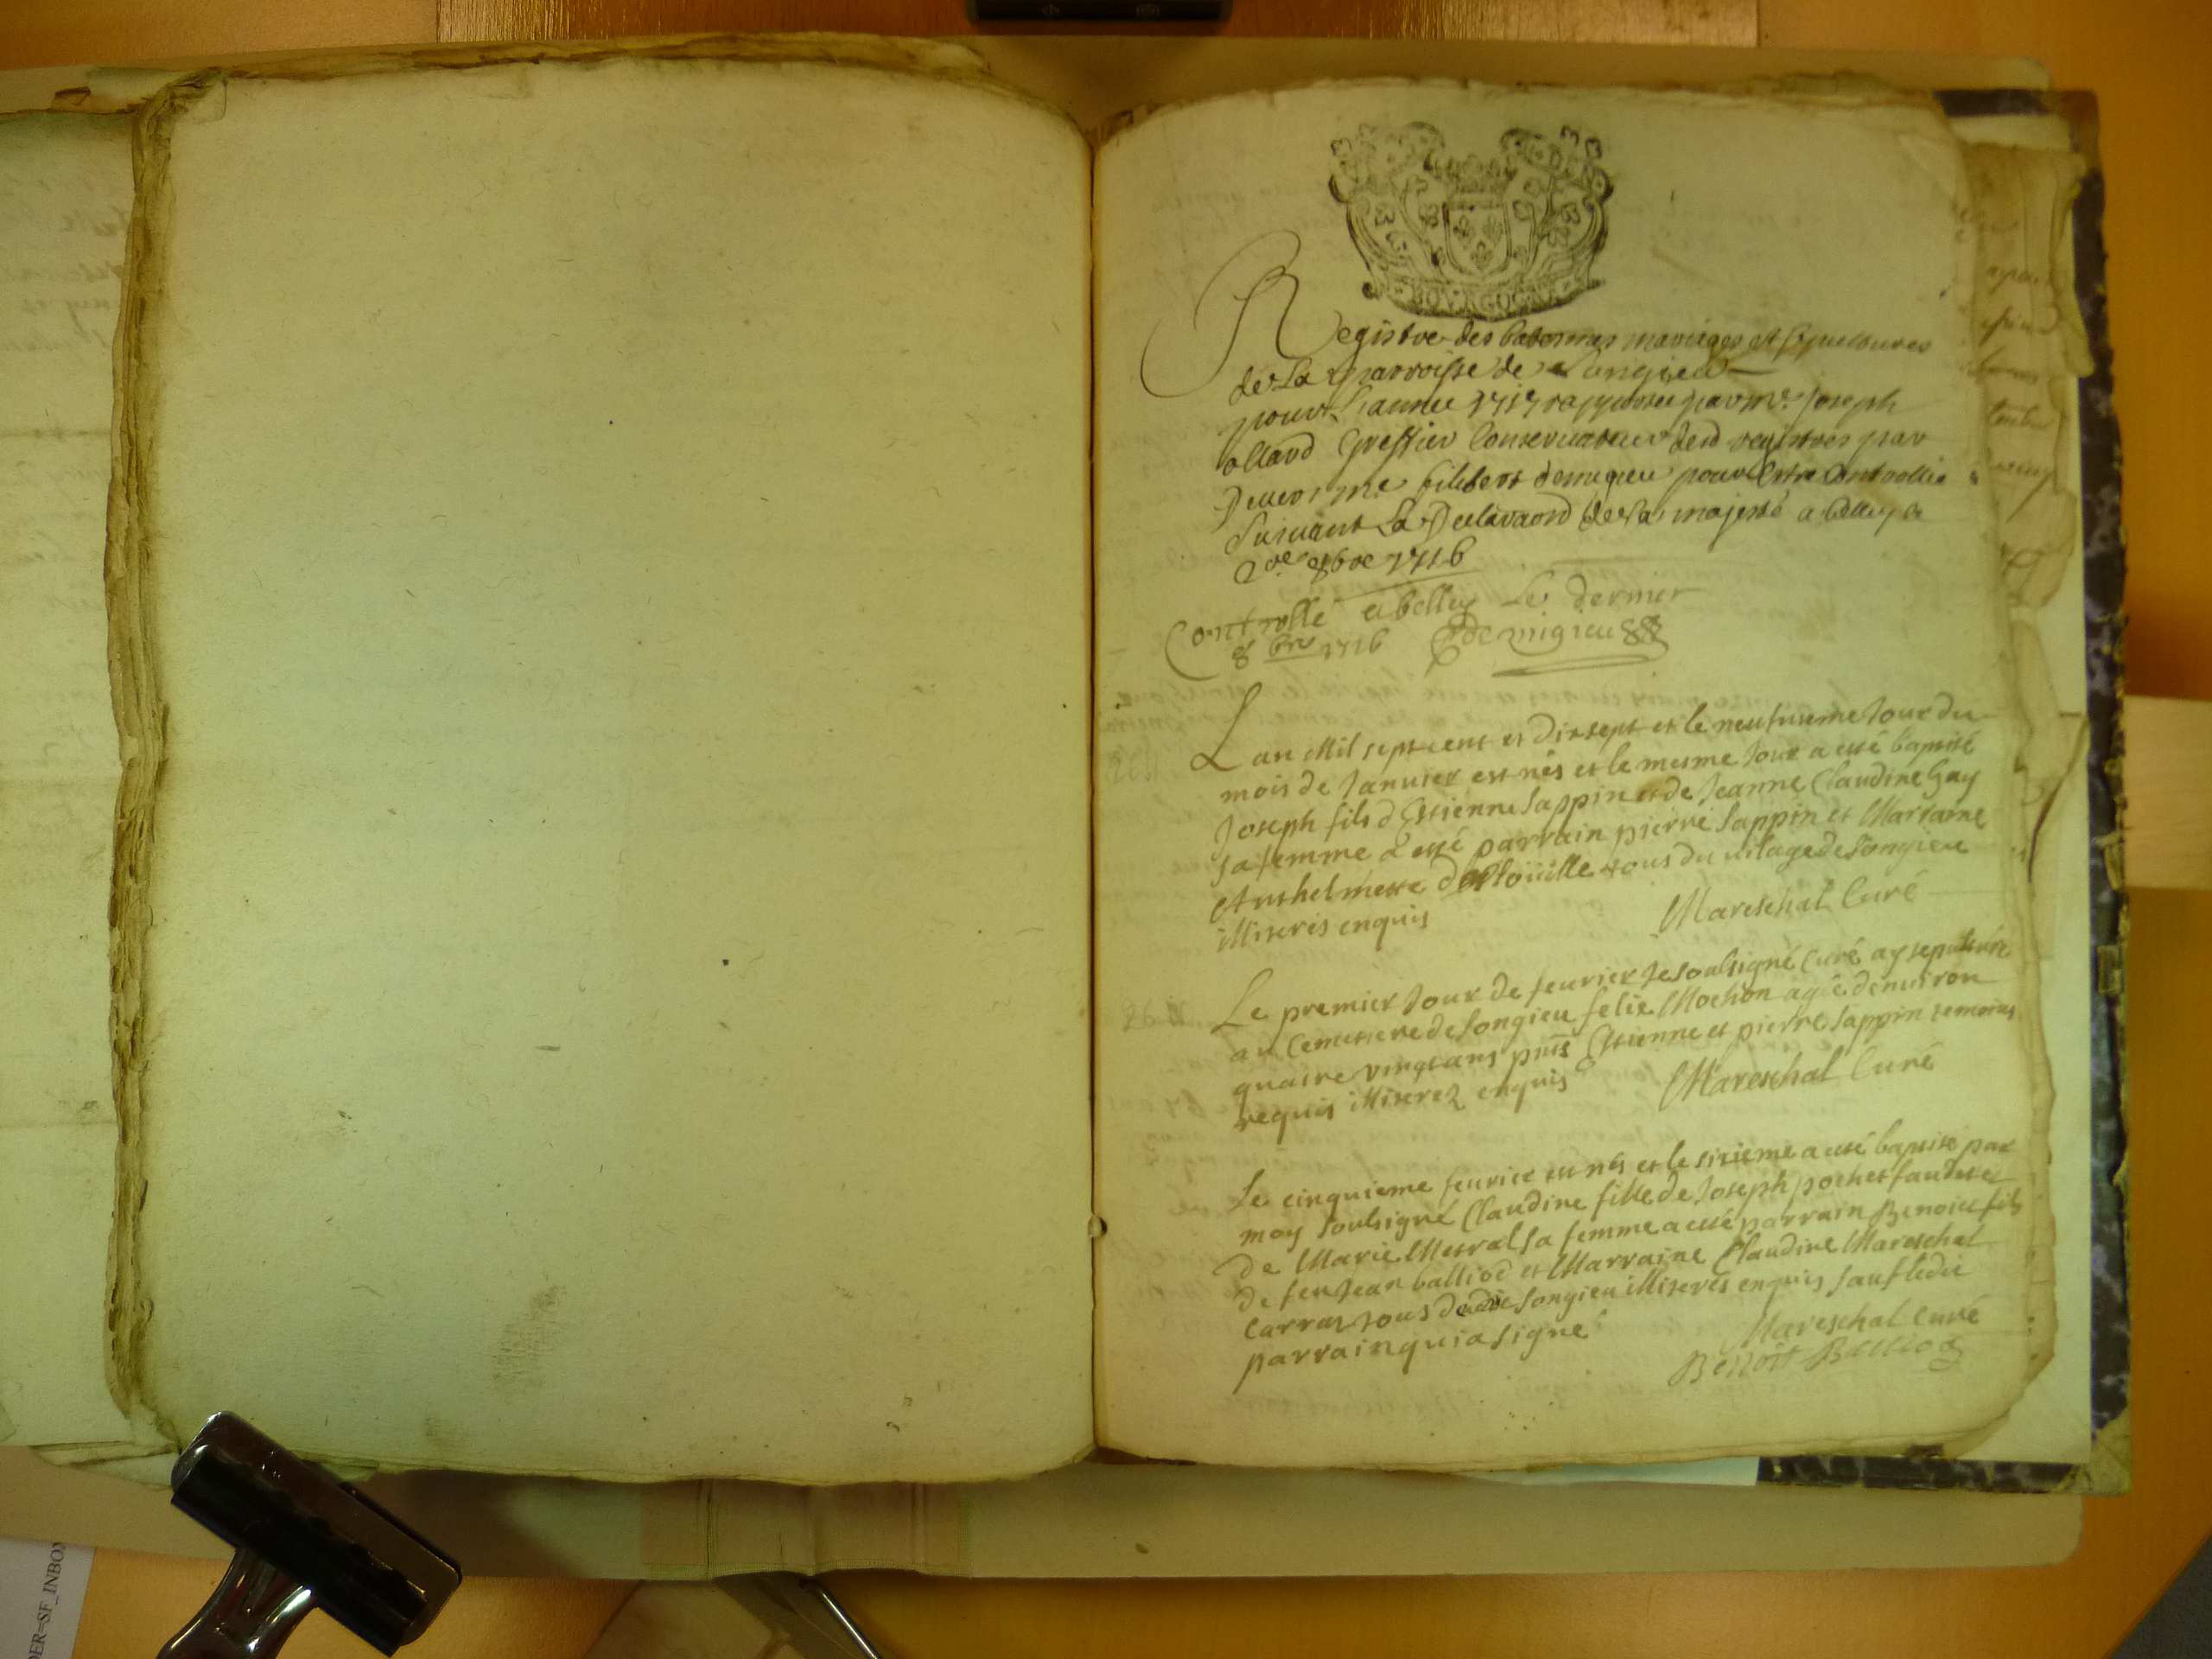 BOVRGOGNE
Registre des batesmes mariages et sepultures
de La parroisse de Songieu
pour L'année 1717 par me. Joseph
ollard Greffier Conservateur desd registres par
Devers me. filibert demigieu pour Estre Controllée
Suivant La Declaraon de Sa majesté a belley ce
8bre 1716
Controlle a belley Le dernier
8 bre 1716 Demigieu
Lan Mil sept cent et dixsept et le neufuieme Jour du
mois de Januier est nés et le mesme Jour a esté baptisé
Joseph fils d Estienne Sappin et de Jeanne Claudine Gay
sa femme a esté parrain pierre Sappin et Marraine
Anthelmette tous du uilage de Songieu
illiterés enquis Mareschal Curé
Le premier Jour de feurier Je soubsigné Curé ay sepulturé
au Cemetiere de Songieu felix Mochon agée denuiron
quatre vingt ans Estienne et pierre Sappin temoins
requis illiterez enquis Mareschal Curé
Le cinquieme feurier est nés et le sixieme a esté baptisé par
moy soubsigné Claudine fille de Joseph pochet et
de Marie Mestral sa femme a esté parrain Benoist fils
de feu Jean balliod et Marraine Claudine Mareschal
Carraz tous de Songieu illiterés enquis sauf ledit
parrain qui a signé Mareschal Curé
Benoit Balliod
DER=SF_INBOX